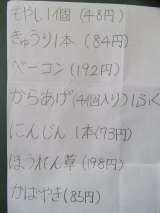 もやし1個 (48円)
きゅうり1本 (84円)
ベーコン (192円)
からあげ(4個入り)1ふく
にんじん 1本(73円)
ほうれん草 (198円)
かばやき(85円)